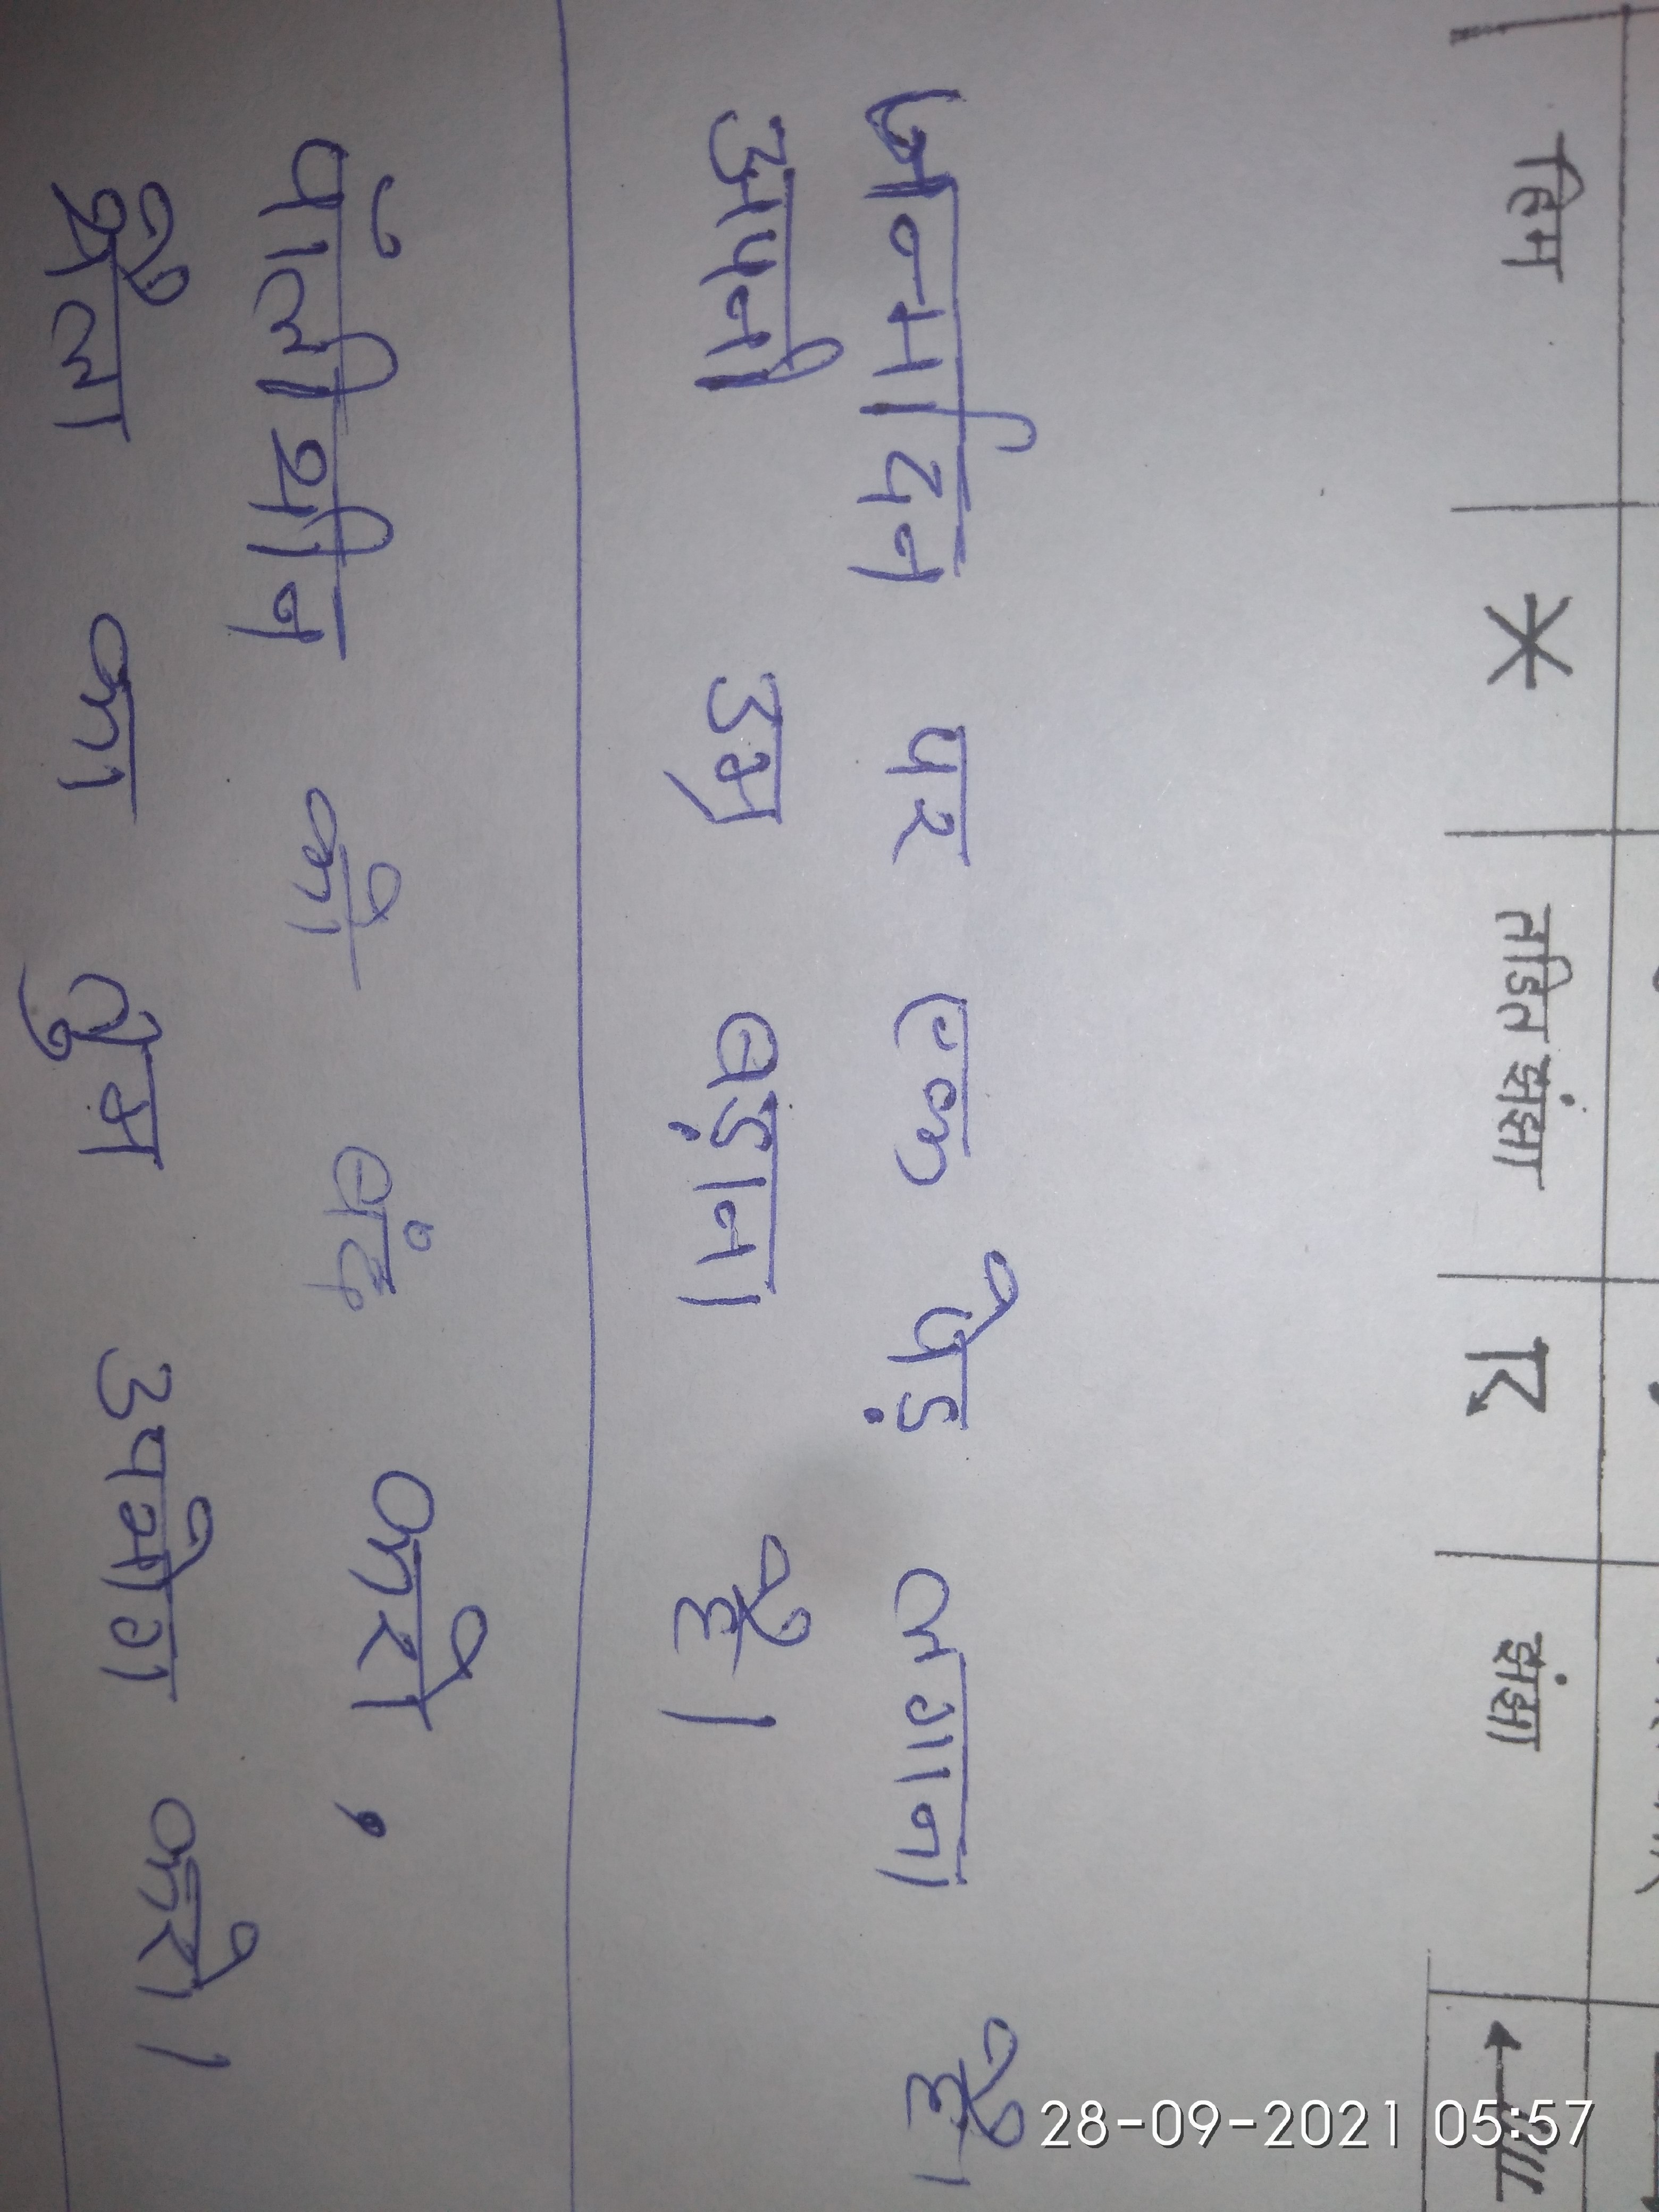 हिम तडित झंझा झंझा
जन्मदिन पर एक पेड़ लगाना है।
अपनी उम्र बड़ाना है।
पॉलीथीन को बंद करो,
थैला का तुम उपभोग करो।
28-09-2021 05:57